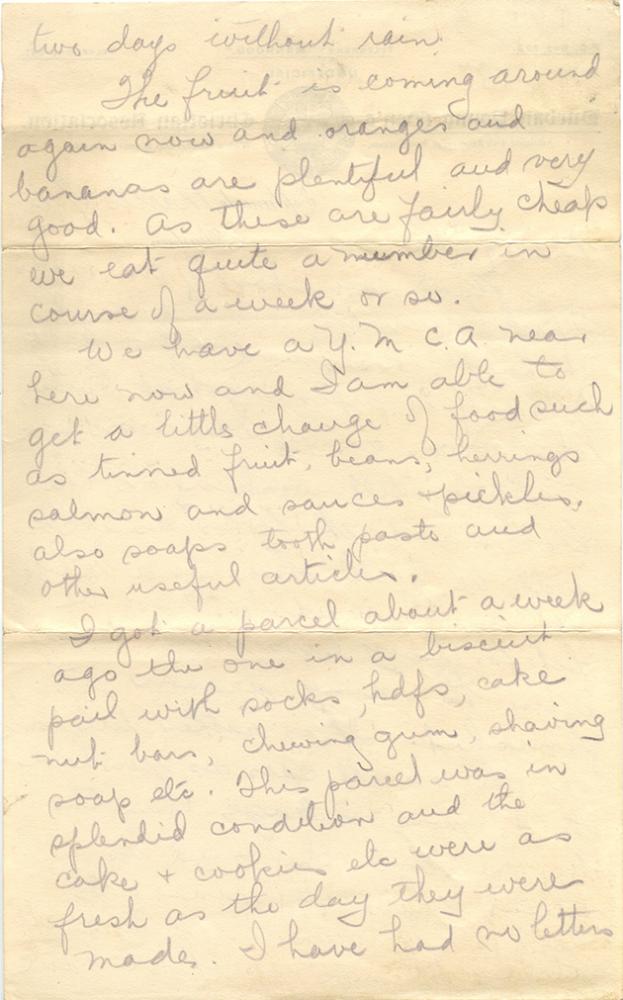 two days without rain.
The fruit is coming around
again now and oranges and
bananas are plentiful and very
good. As these are fairly cheap
we eat quite a number in
course of a week or so.
We have a Y.M C.A. near
here now and I am able to
get a little change of food such
as tinned fruit, beans, herrings
salmon and sauces + pickles,
also soaps tooth paste and
other useful articles.
I got a parcel about a week
ago the one in a biscuit
pail with socks, hdfs, cake
nut bars, chewing gum, shaving
soap etc. This parcel was in
splendid condition and the
cake + cookies etc were as
fresh as the day they were
made. I have had no letters